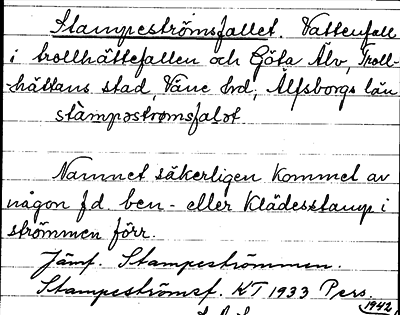 Stampeströmsfallet. Vattenfall
i trollhättefallen och Göta Älv, Troll-
hättans stad, Väne hrd, Älfsborgs län
stàmpəstrømsfalət
Namnet säkerligen kommet av
någon fd. ben- eller klädesstamp i
strömmen förr.
Jämf. Stampeströmmen.
Stampeströmsf. KT 1933 Pers.
1942